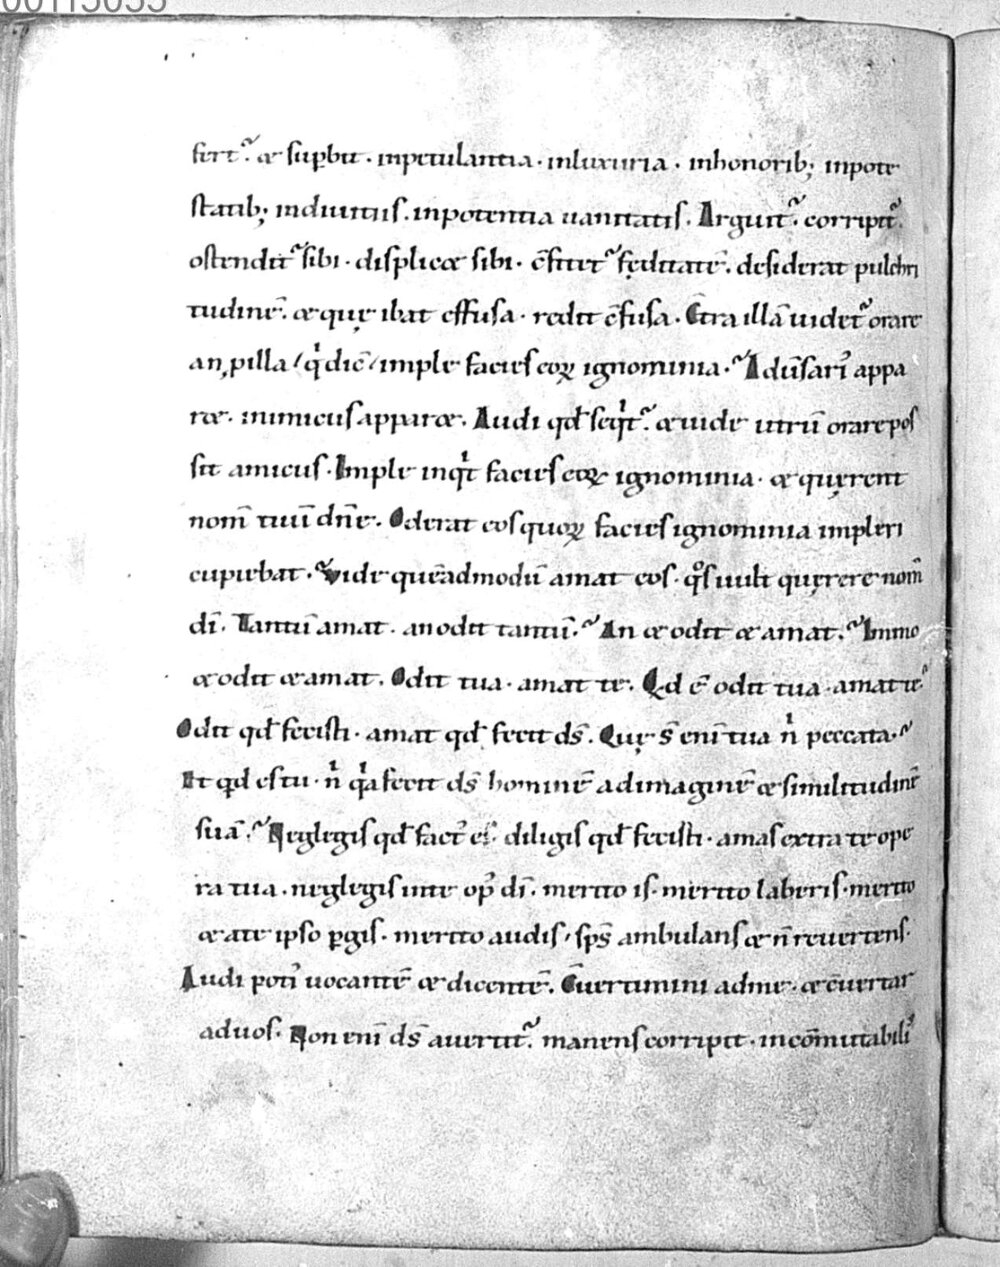 00113033
fert᷑. & suꝑbit. inpetulantia. inluxuria. inhonorib; inpote
statib; indiuitiis. inpotentia uanitatis. Arguit᷑. corripit᷑.
ostendit᷑ sibi. displic& sibi. c̄fitet᷑ fęditatē. desiderat pulchri
tudinē. & quę ibat effusa. redit c̄fusa. C̄tra illā uidet᷑ orare
an ꝓ illa / q̍ dic̄ / imple facies eoꝝ ignominia. Aduersariꝰ appa
r&. inimicus appar&. Audi qd̄ seq̍t᷑. & uide utrū orare pos
sit amicus. Imple inq̍t facies eoꝝ ignominia. & quęrent
nom̄ tuū dn̄e. Oderat eos quoꝝ facies ignominia impleri
cupiebat. Vide quēadmodū amat eos. qͦs uult quęrere nom̄
dī. Tantū amat. an odit tantū. An & odit & amat. Immo
& odit & amat. Odit tua. amat te. Qd ē odit tua. amat te
Odit qd̄ fecisti. amat qd̄ fecit ds̄. Quę s̄ enī tua n̍ peccata.
Et qd es tu. n̍ q̍a fecit ds̄ hominē ad imaginē & similitudinē
suā. Neglegis qd̄ fact᷑ es. diligis qd̄ fecisti. amas extra te ope
ra tua. neglegis inte opꝰ dī. merito is. merito laberis. merito
& a te ipso ꝑgis. merito audis / sps̄ ambulans & n̄ reuertens.
Audi potiꝰ uocantē & dicentē. C̄uertimini ad me. & c̄uertar
ad uos. Non enī ds̄ auertit᷑. manens corripit. incōmutabilis